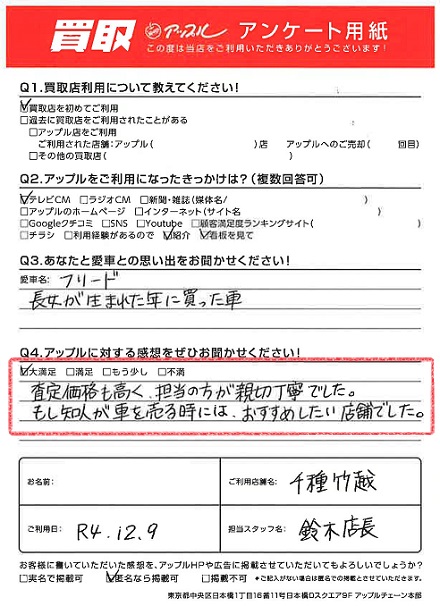 買取 アップル アンケート用紙
この度は当店をご利用いただきありがとうございます!
Q1.買取店利用について教えてください!
☑買取店を初めてご利用
□過去に買取店をご利用されたことがある
□アップル店をご利用
ご利用された店舗:アップル( )店 アップルへのご売却( 回目)
□その他の買取店( )
Q2.アップルをご利用になったきっかけは?(複数回答可)
☑テレビCM □ラジオCM □新聞・雑誌(媒体名/ )
□アップルのホームページ □インターネット(サイト名 )
□Googleクチコミ □SNS □Youtube □顧客満足度ランキングサイト( )
□チラシ □利用経験があるので ☑紹介 ☑看板を見て
Q3.あなたと愛車との思い出をお聞かせください!
愛車名: フリード
長女が生まれた年に買った車
Q4.アップルに対する感想をぜひお聞かせください!
☑大満足 □満足 □もう少し □不満
査定価格も高く、担当の方が親切丁寧でした。
もし知人が車を売る時には、おすすめしたい店舗でした。
お名前: ご利用店舗名: 千種竹越
ご利用日: R4.12.9 担当スタッフ名: 鈴木店長
お客様に書いていただいた感想を、アップルHPや広告に掲載させていただいてもよろしいでしょうか?
□実名で掲載可 ☑匿名なら掲載可 □掲載不可 *ご記入がない場合は匿名での掲載とさせていただきます。
東京都中央区日本橋1丁目16番11号日本橋Dスクエア9F アップルチェーン本部